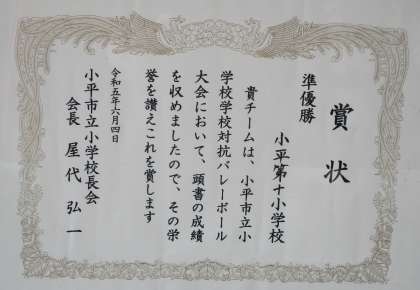 賞状
準優勝
小平第十小学校
貴チームは、小平市立小
学校学校対抗バレーボール
大会において、頭書の成績
を収めましたので、その栄
誉を讃えこれを賞します
令和五年六月四日
小平市立小学校長会
会長 屋代弘一